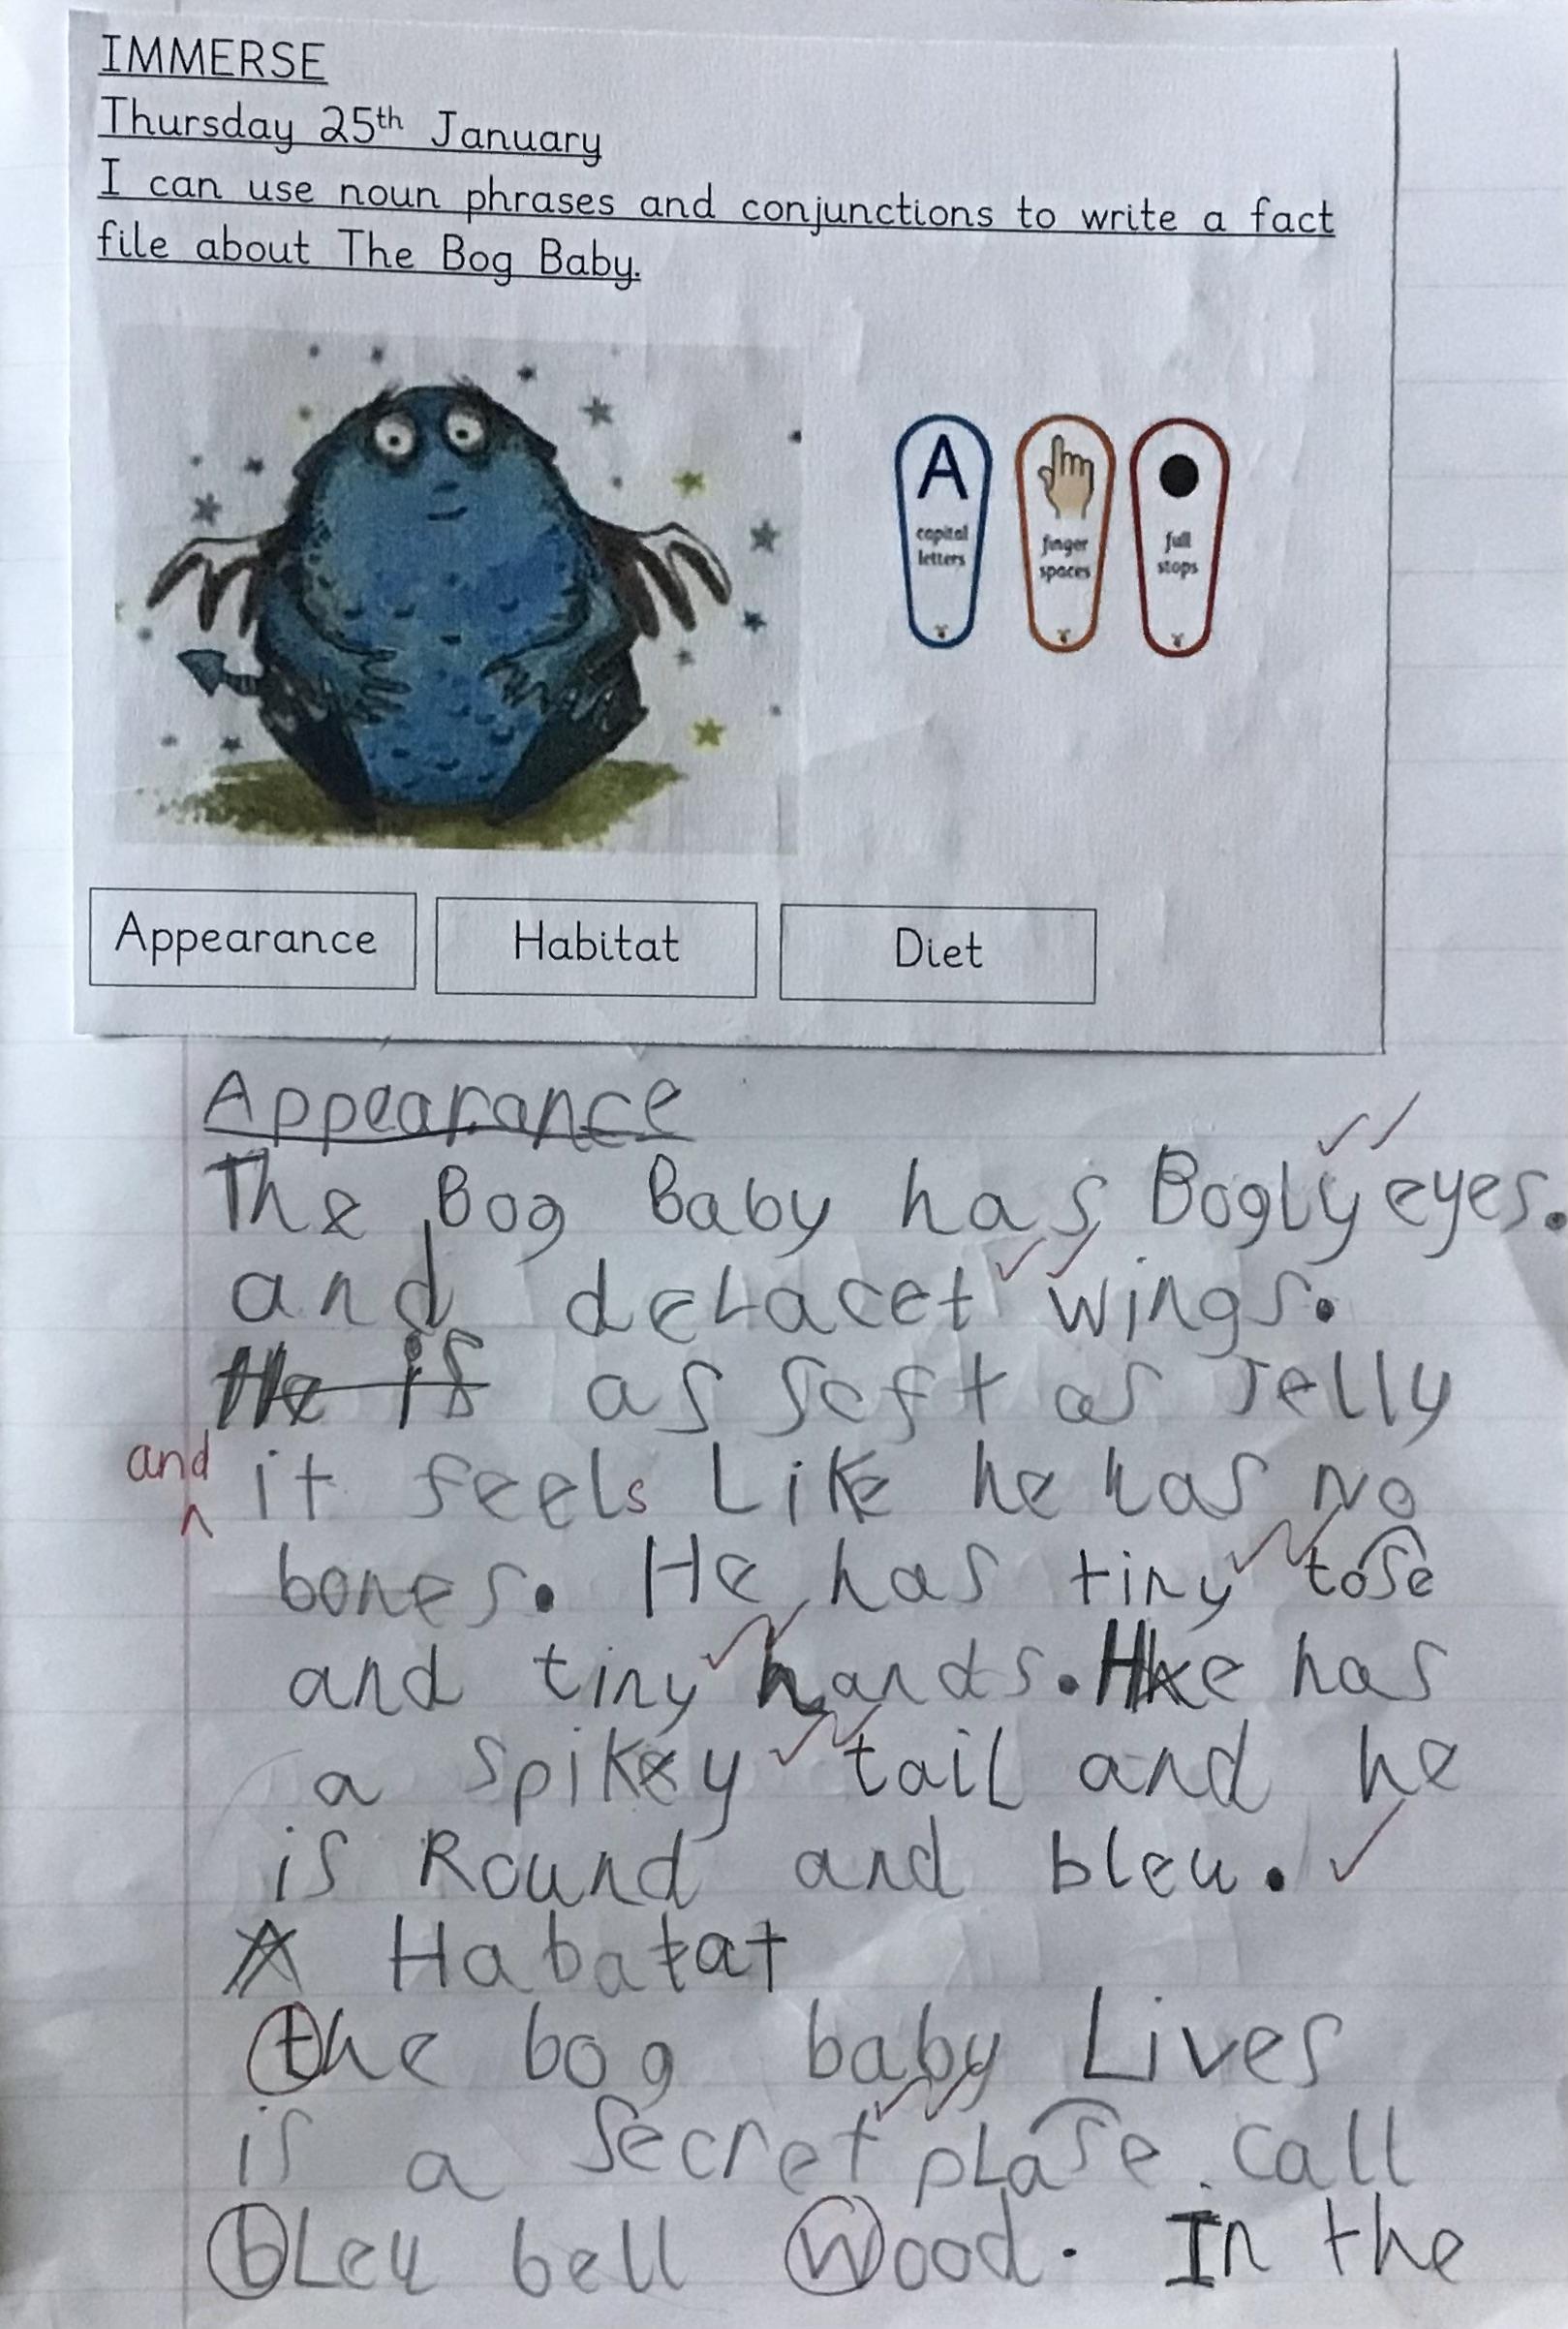 IMMERSE
Thursday 25th January
I can use noun phrases and conjunctions to write a fact
file about The Bog Baby.
A
capital
letters
finger
spaces
full
stops
Appearance
Habitat
Diet
Appearance
The Bog Baby has Bogly eyes.
and delacet wings.
He is as soft as Jelly
and
it feels Like he has No
bones. He has tiny tose
and tiny hands. He has
a spikey tail and he
is Round and bleu.
A Habatat
the bog baby Lives
is a secret plase call
bleu bell Wood. In the